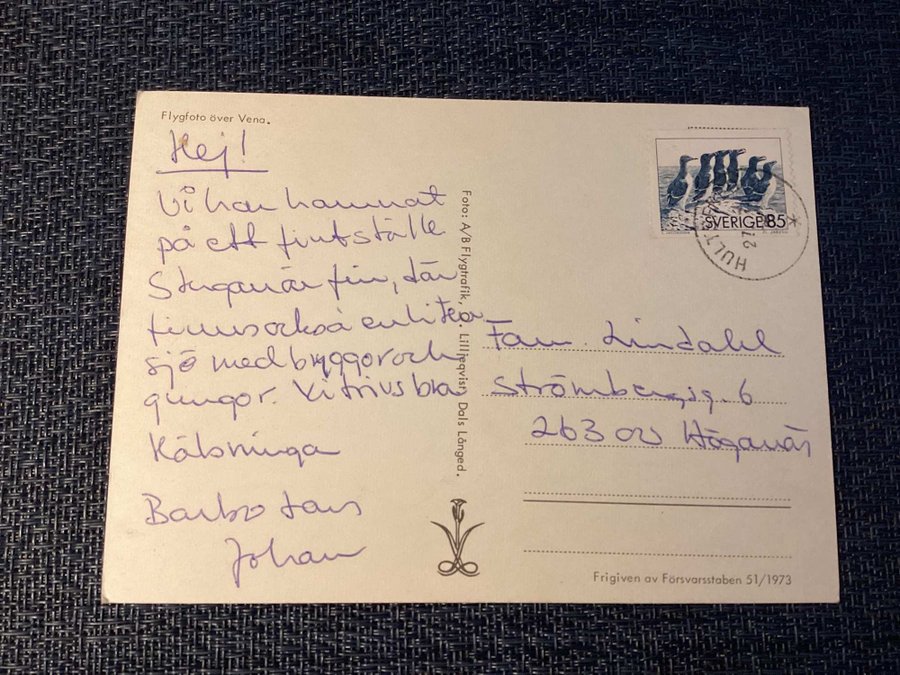 Flygfoto över Vena.
Hej!
Vi har hamnat
på ett fint ställe
Stugan är fin, där
finns också en liten
sjö med bryggor och
gungor. Vi trivs bra
Hälsningar
Barbro Lars
Johan
Foto: A/B Flygtrafik, Lilljeqvist, Dals Långed.
SVERIGE 85
HULT
27
Fam. Lindahl
Strömbergsg. 6
263 00 Höganäs
Frigiven av Försvarsstaben 51/1973